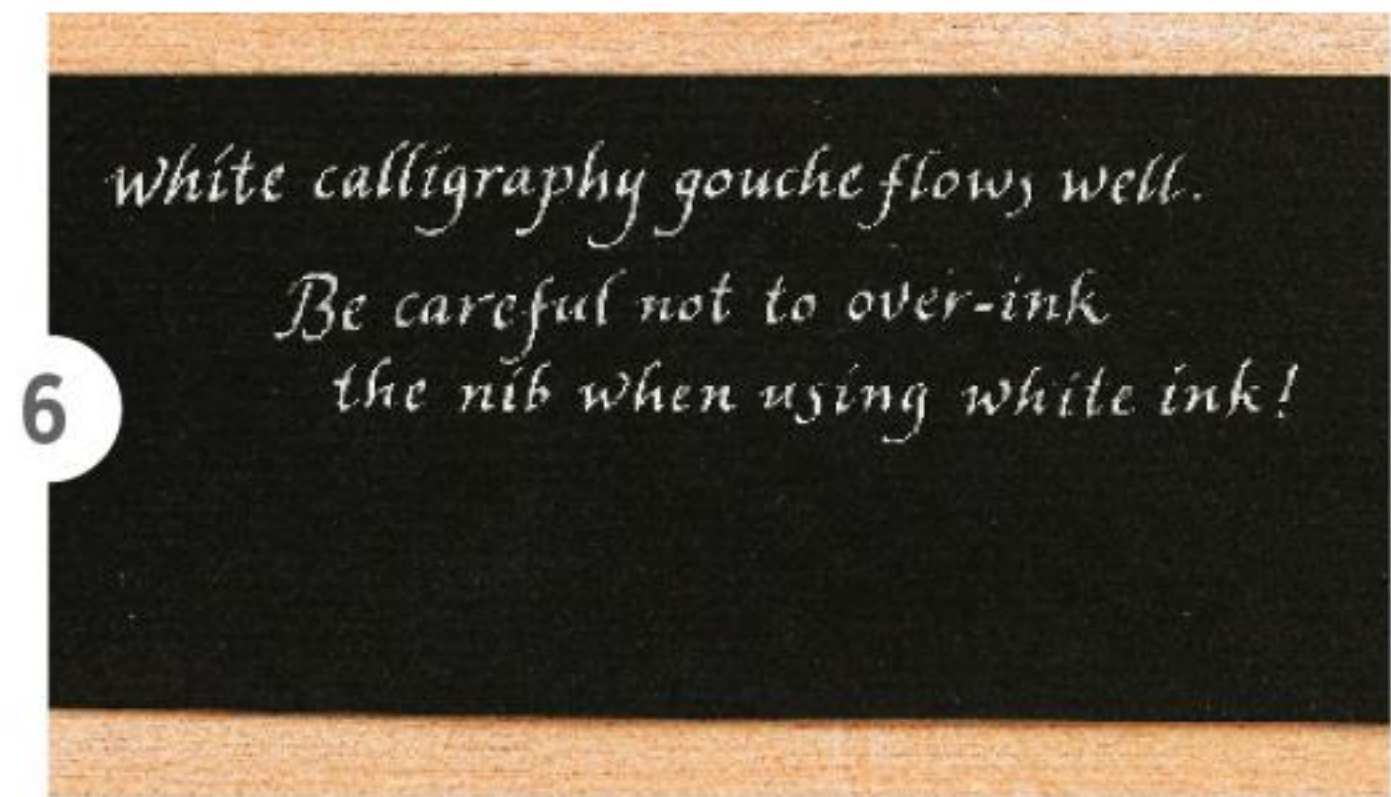 white calligraphy gouche flows well.
Be careful not to over-ink
6
the nib when using white ink!